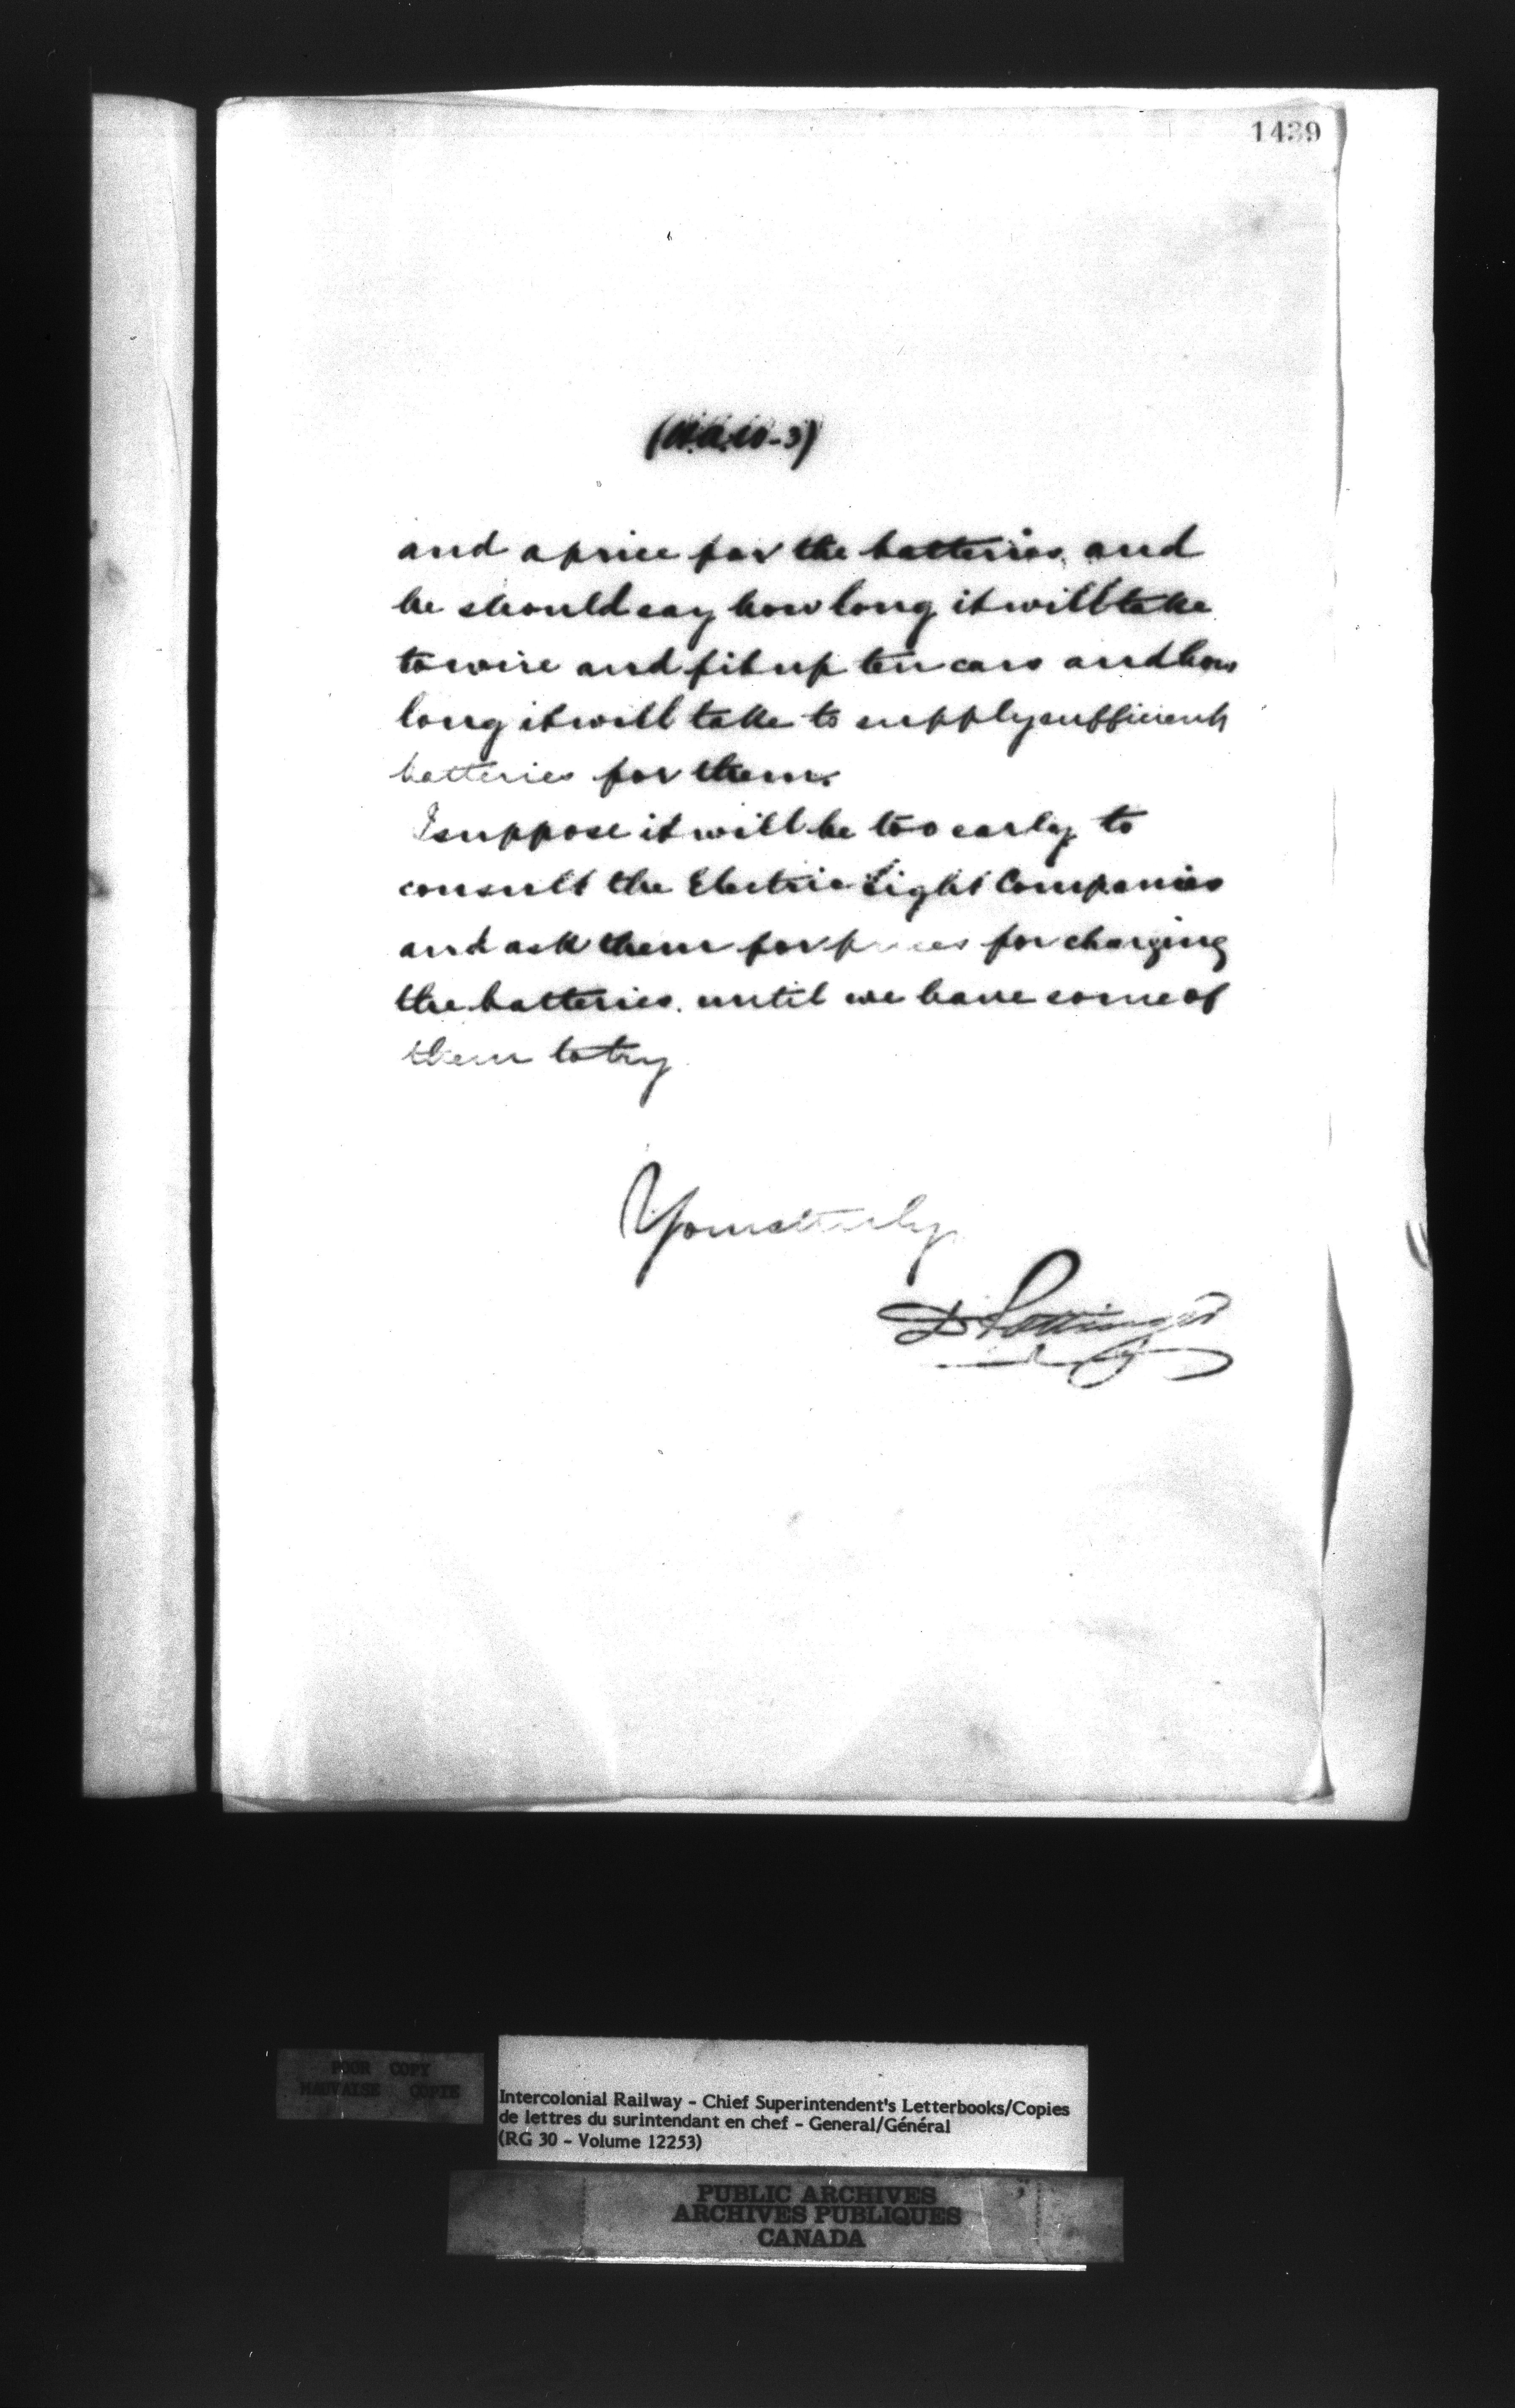 1439
and a price for the batteries, and
he should say how long it will take
to wire and fit up ten cars and how
long it will take to supply sufficient
batteries for them.
I suppose it will be too early to
consult the Electric Light Companies
and ask them for prices for charging
the batteries. until we have some of
them to try
Yours truly,
D Pottinger
POOR COPY
MAUVAISE COPIE
Intercolonial Railway - Chief Superintendent's Letterbooks/Copies
de lettres du surintendant en chef - General/Général
(RG 30 - Volume 12253)
PUBLIC ARCHIVES
ARCHIVES PUBLIQUES
CANADA